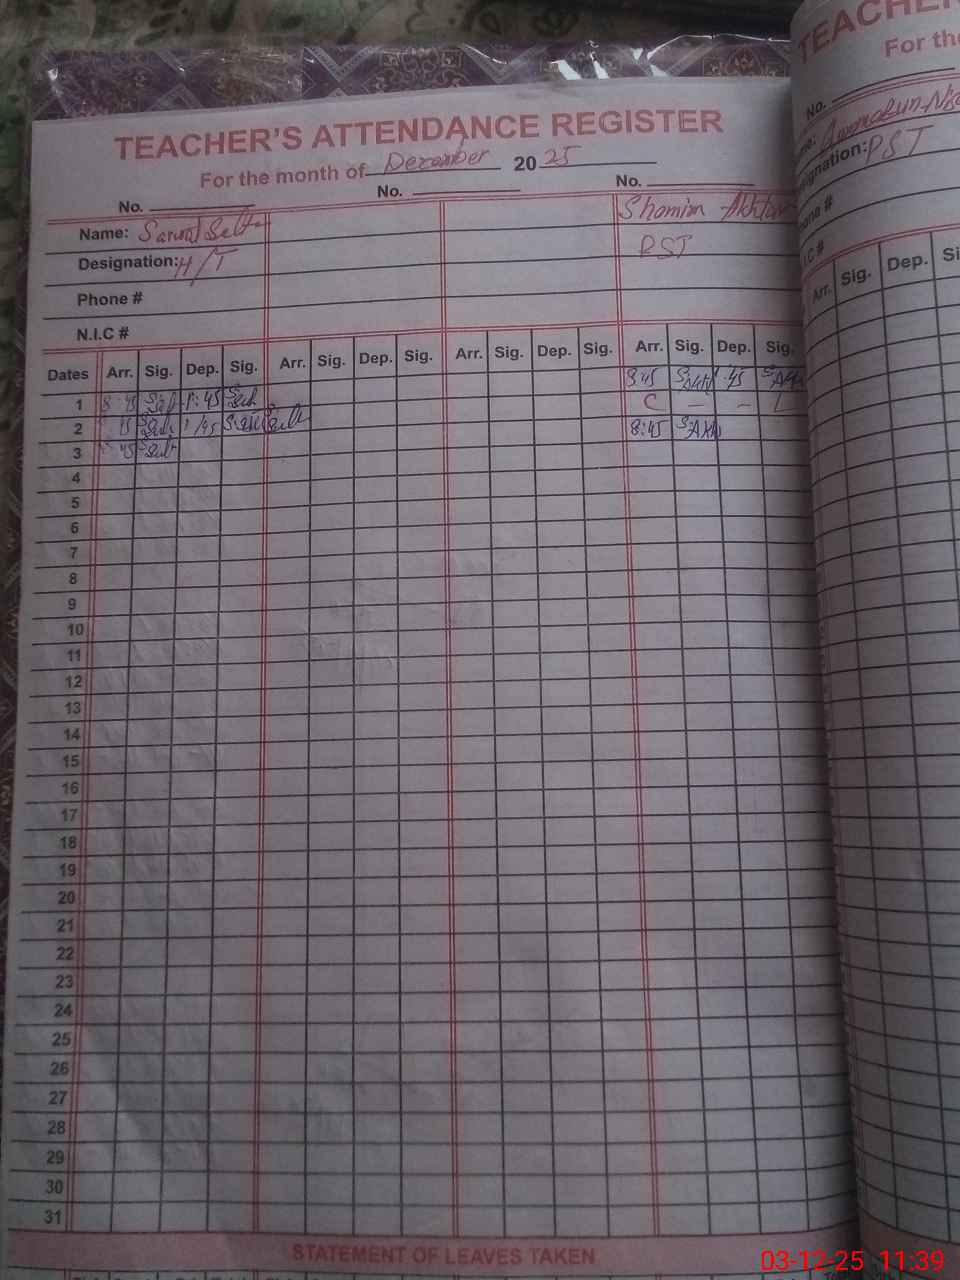 TEACHER'S ATTENDANCE REGISTER
For the month of December 2025
No. No. No.
Name: Shamim Akhtar
Designation: H/T PST
Phone #
N.I.C #
Dates Arr. Sig. Dep. Sig. Arr. Sig. Dep. Sig. Arr. Sig. Dep. Sig. Arr. Sig. Dep. Sig.
1 8:45 1:45 8:45 :45
2 :45 1/45 C - - L
3 :45 8:45
4
5
6
7
8
9
10
11
12
13
14
15
16
17
18
19
20
21
22
23
24
25
26
27
28
29
30
31
STATEMENT OF LEAVES TAKEN
TEACHER
For the
No.
PST
Arr. Sig. Dep. Si
03-12-25 11:39